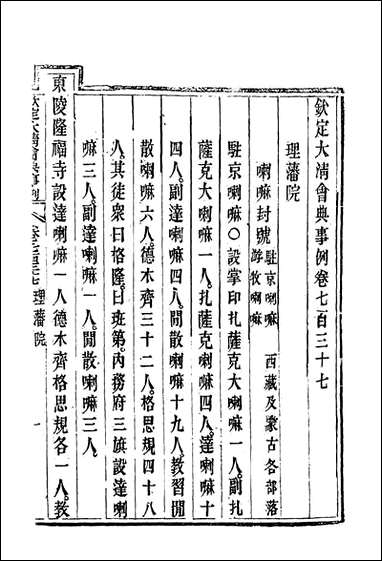 欽定大清會典事例卷七百三十七
理藩院
喇嘛封號 駐京喇嘛 西藏及蒙古各部落游牧喇嘛
駐京喇嘛○設掌印扎薩克大喇嘛一人。副扎
薩克大喇嘛一人。扎薩克喇嘛四人。達喇嘛十
四人。副達喇嘛四人。閒散喇嘛十九人。教習閒
散喇嘛六人。德木齊三十二人。格思規四十八
人。其徒衆曰格隆。曰班第。內務府三旗設達喇
嘛三人。副達喇嘛一人。閒散喇嘛三人。
東陵隆福寺設達喇嘛一人。德木齊格思規各一人。教
欽定大清會典事例
理藩院
一